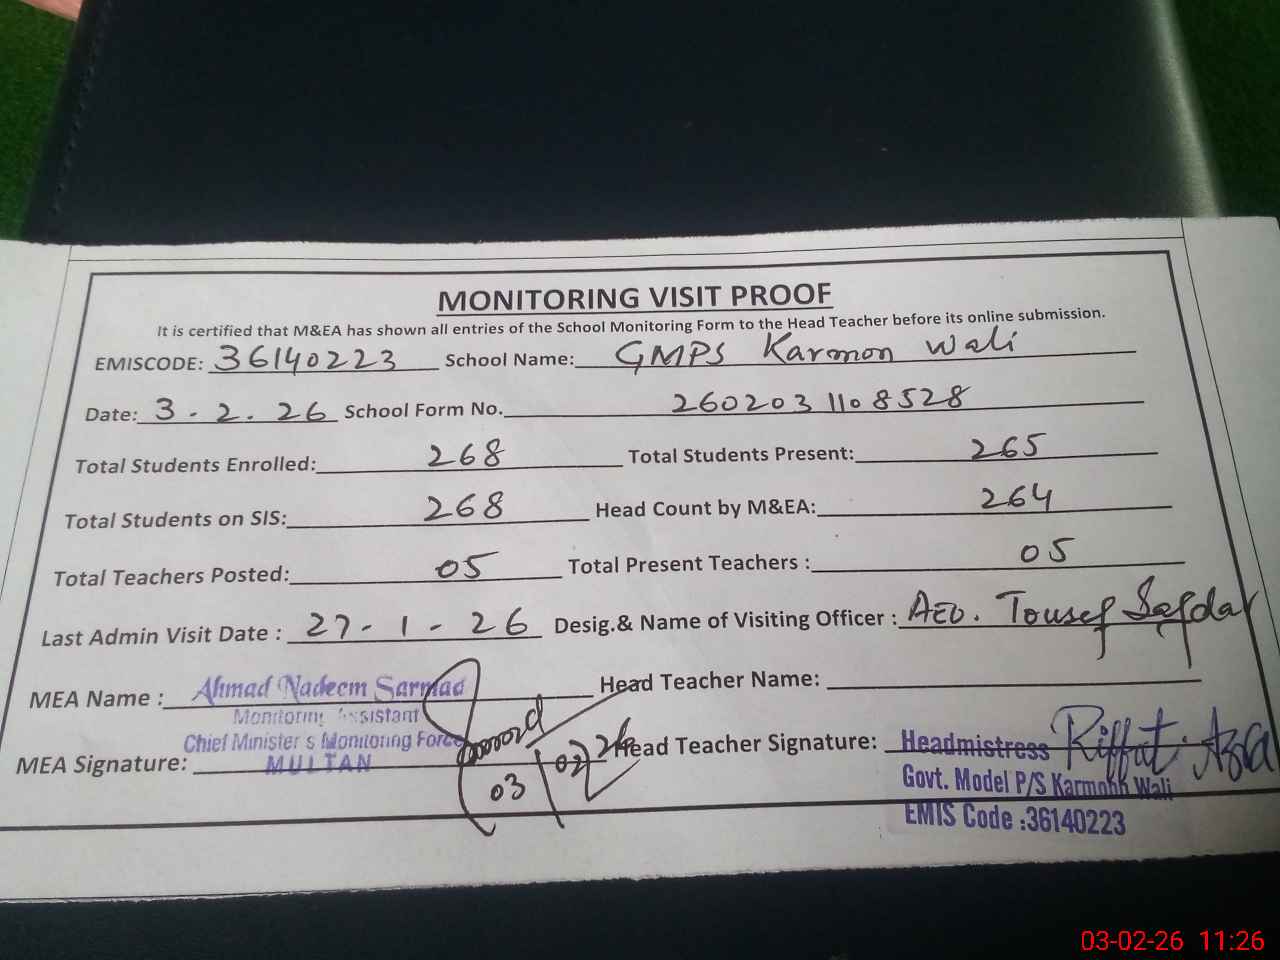 MONITORING VISIT PROOF
It is certified that M&EA has shown all entries of the School Monitoring Form to the Head Teacher before its online submission.
EMISCODE: 36140223 School Name: GMPS Karmon Wali
Date: 3.2.26 School Form No. 2602031108528
Total Students Enrolled: 268 Total Students Present: 265
Total Students on SIS: 268 Head Count by M&EA: 264
Total Teachers Posted: 05 Total Present Teachers : 05
Last Admin Visit Date : 27-1-26 Desig.& Name of Visiting Officer : AEO. Tousef Safdar
MEA Name : Ahmad Nadeem Sarmad Head Teacher Name:
Monitoring Assistant
Chief Minister's Monitoring Force
MEA Signature: MULTAN 03/02/26 Head Teacher Signature: Headmistress Riffat Azra
Govt. Model P/S Karmonn Wali
EMIS Code :36140223
03-02-26 11:26